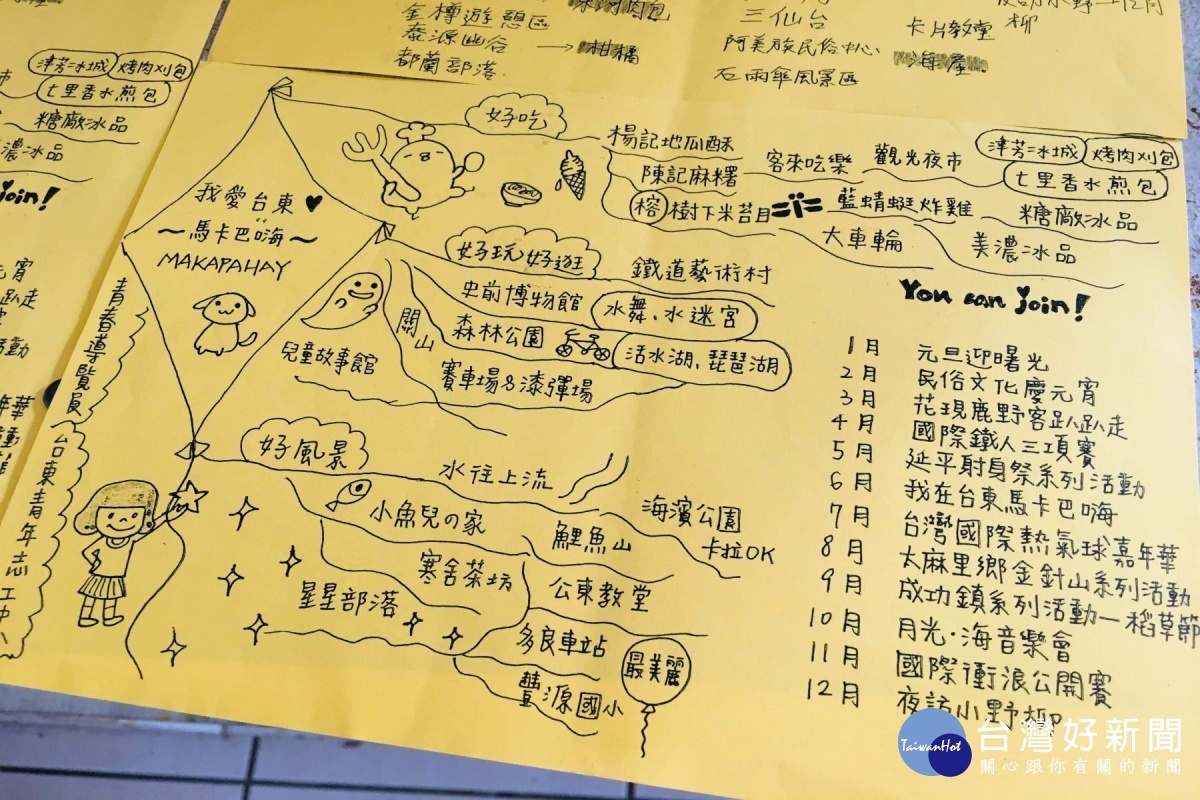 金樽遊憩區
泰源幽谷
都蘭部落
柑橘
三仙台
阿美族民俗中心
石雨傘風景區
卡片教堂
海產
柳
津芳冰城 烤肉刈包
七里香水煎包
糖廠冰品
濃冰品
join!
我愛台東
~馬卡巴嗨~
MAKAPAHAY
青春導覽員
台東青年志工中心
好吃
楊記地瓜酥
陳記麻糬
榕樹下米苔目
客來吃樂
觀光夜市
藍蜻蜓炸雞
大車輪
津芳冰城
烤肉刈包
七里香水煎包
糖廠冰品
美濃冰品
好玩好逛
鐵道藝術村
史前博物館
水舞、水迷宮
關山
森林公園
活水湖、琵琶湖
兒童故事館
賽車場&漆彈場
好風景
水往上流
小魚兒の家
鯉魚山
海濱公園
卡拉OK
寒舍茶坊
公東教堂
星星部落
多良車站
最美麗
豐源國小
You can join!
1月 元旦迎曙光
2月 民俗文化慶元宵
3月 花現鹿野客趴趴走
4月 國際鐵人三項賽
5月 延平射身祭系列活動
6月 我在台東馬卡巴嗨
7月 台灣國際熱氣球嘉年華
8月 太麻里鄉金針山系列活動
9月 成功鎮系列活動—稻草節
10月 月光·海音樂會
11月 國際衝浪公開賽
12月 夜訪小野柳
TaiwanHot
台灣好新聞
關心跟你有關的新聞